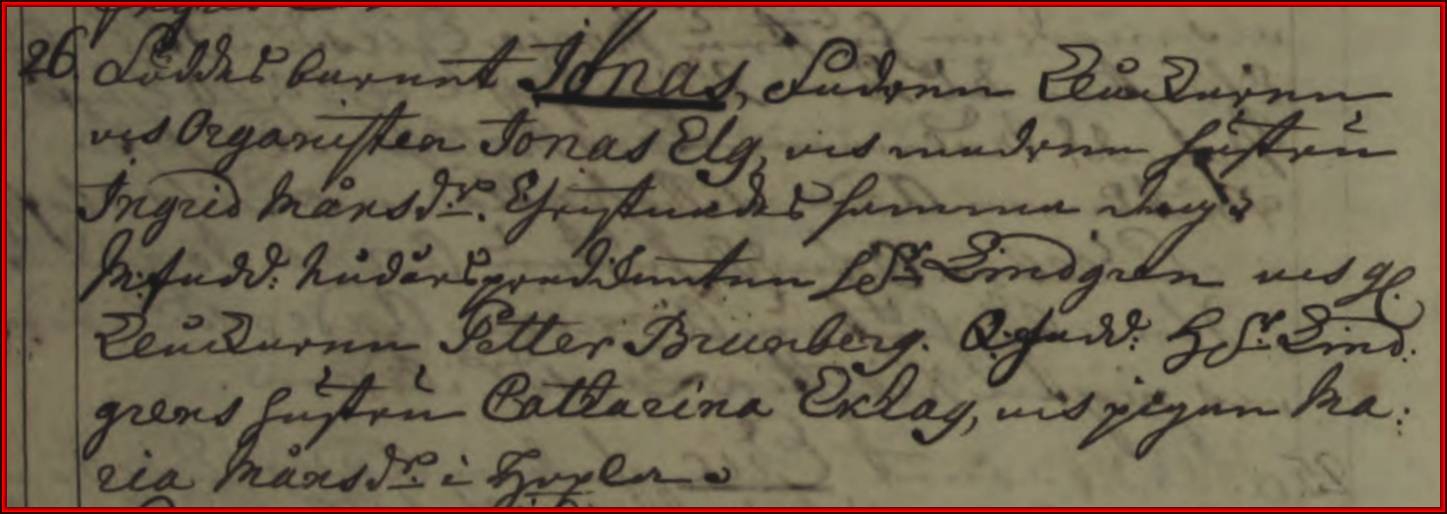 26. Föddes barnet Jonas, Fadren Klåckaren
och Organisten Jonas Elg, och modren hustru
Ingrid Månsdr. Christnades samma dag.
M. fadd: Lindgren och gl.
Klåckaren Petter Brunberg. Q. fadd: H Hr Lind:
grens hustru Cattarina Eklag, och pigan Ma:
ria Månsdr i